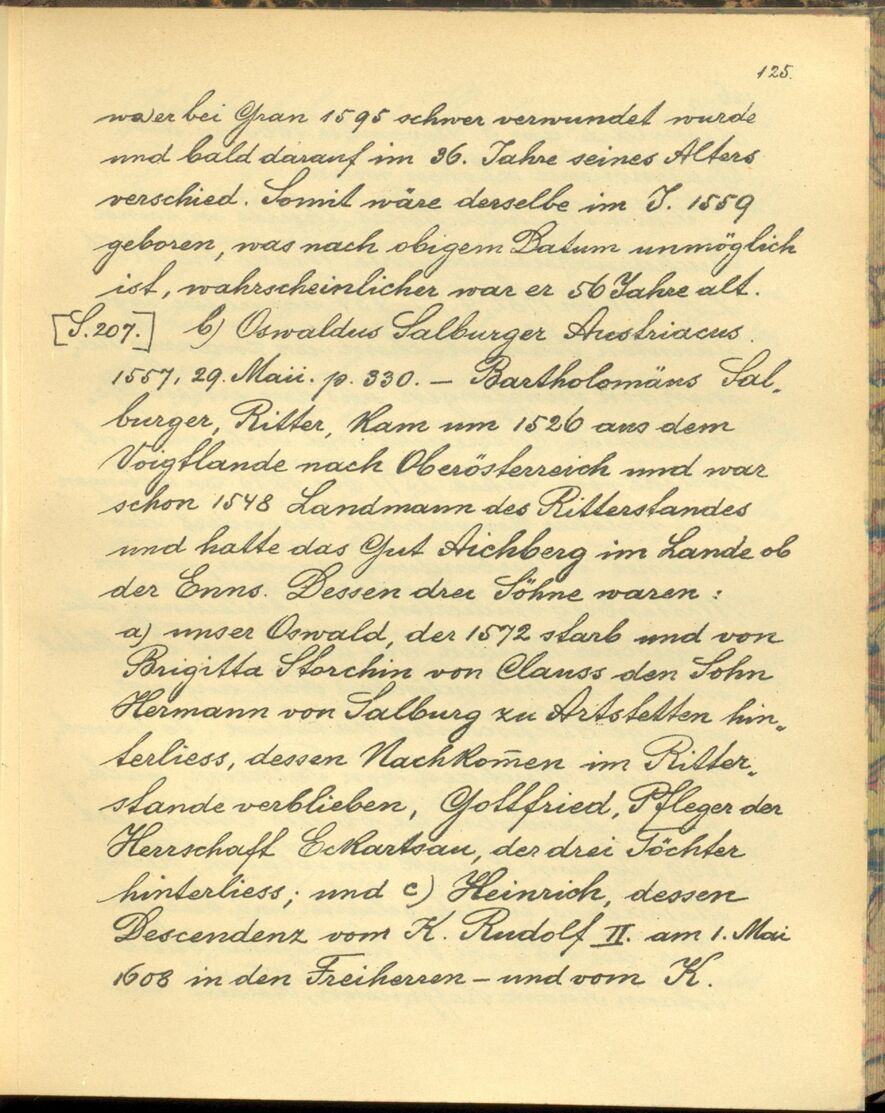 125.
wo er bei Gran 1595 schwer verwundet wurde
und bald darauf im 36. Jahre seines Alters
verschied. Somit wäre derselbe im J. 1559
geboren, was nach obigem Datum unmöglich
ist, wahrscheinlicher war er 56 Jahre alt.
[S. 207.] b) Oswaldus Salburger Austriacus.
1557, 29. Maii. p. 330. — Bartholomäus Sal„
burger, Ritter, kam um 1526 aus dem
Voigtlande nach Oberösterreich und war
schon 1548 Landmann des Ritterstandes
und hatte das Gut Aichberg im Lande ob
der Enns. Dessen drei Söhne waren :
a) unser Oswald, der 1572 starb und von
Brigitta Storchin von Clauss den Sohn
Hermann von Salburg zu Artstetten hin„
terliess, dessen Nachkom̄en im Ritter„
stande verblieben, Gottfried, Pfleger der
Herrschaft Eckartsau, der drei Töchter
hinterliess; und c) Heinrich, dessen
Descendenz vom K. Rudolf II. am 1. Mai
1608 in den Freiherren – und vom K.